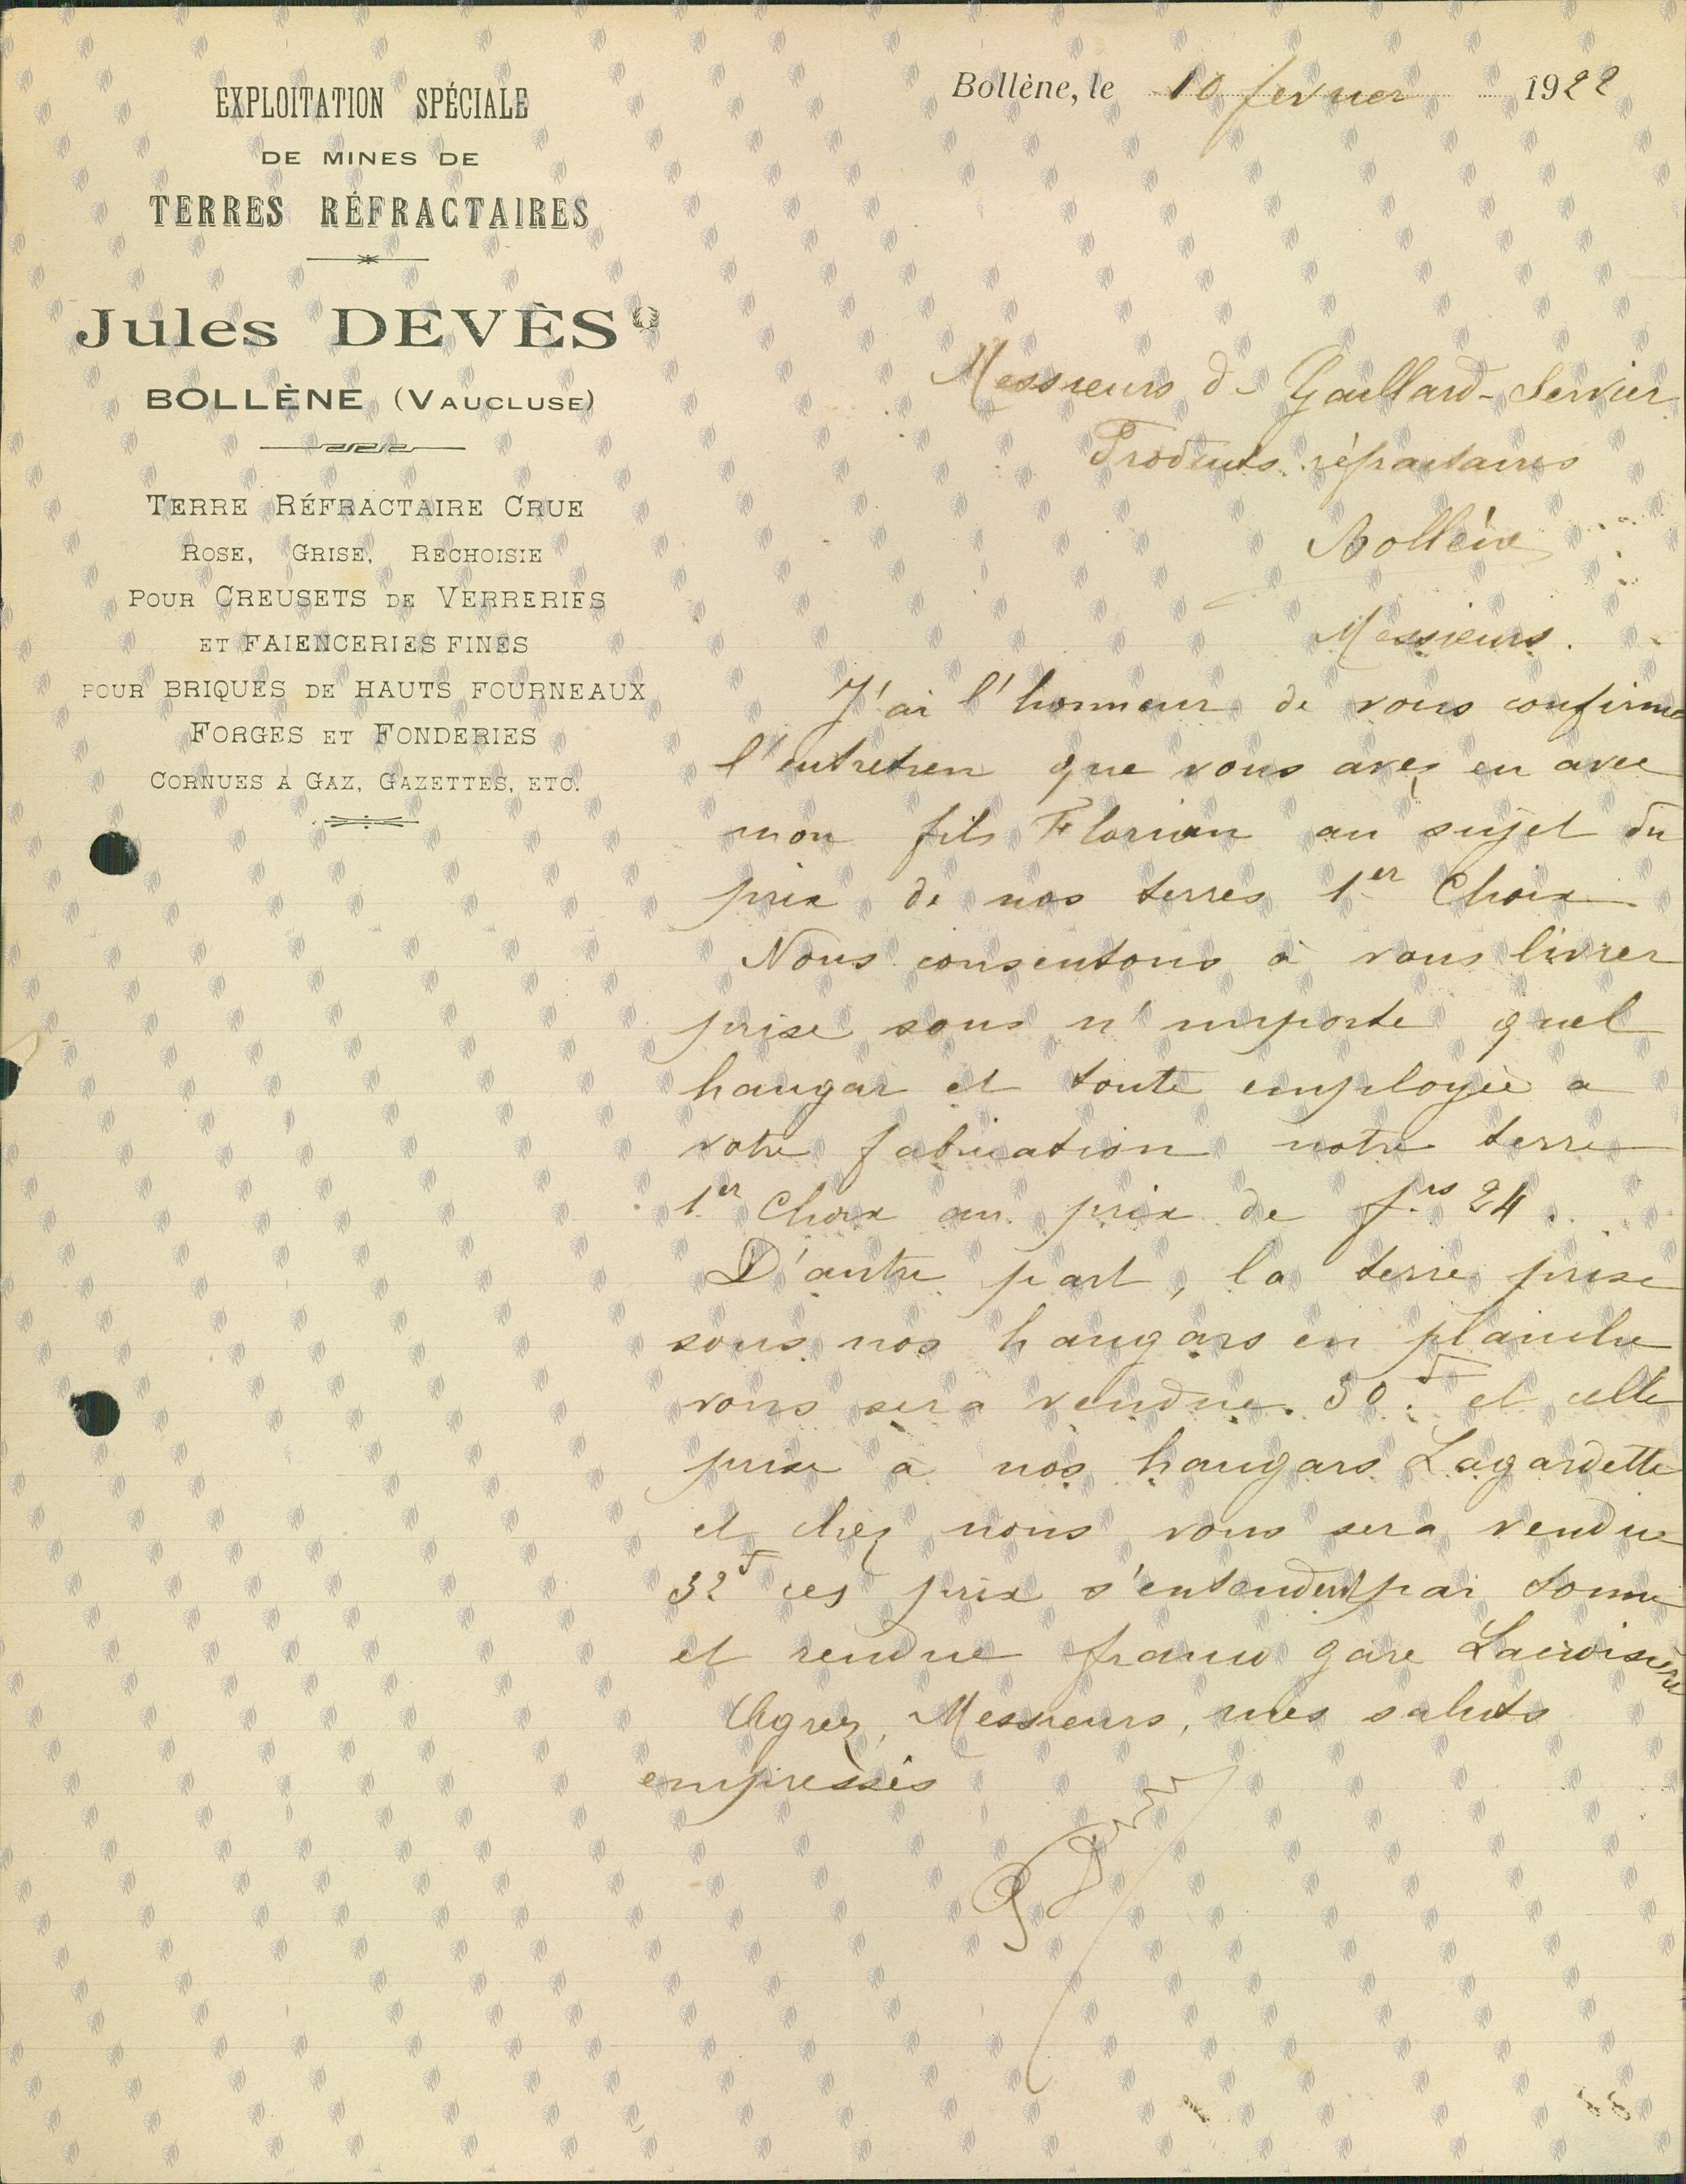 EXPLOITATION SPÉCIALE
DE MINES DE
TERRES RÉFRACTAIRES
Jules DEVÈS
BOLLÈNE (VAUCLUSE)
TERRE RÉFRACTAIRE CRUE
ROSE, GRISE, RECHOISIE
POUR CREUSETS DE VERRERIES
ET FAIENCERIES FINES
POUR BRIQUES DE HAUTS FOURNEAUX
FORGES ET FONDERIES
CORNUES A GAZ, GAZETTES, ETC.
Bollène, le 10 fevrier 1922
Messieurs de Gaillard-Servier
Produits réfractaires
Bollène
Messieurs.
J'ai l'honneur de vous confirmer
l'entretien que vous avez eu avec
mon fils Florian au sujet du
prix de nos terres 1er Choix
Nous consentons à vous livrer
prise sous n'importe quel
hangar et toute employée a
votre fabrication notre terre
1er Choix au prix de frs 24.
D'autre part, la terre prise
sous nos hangars en planche
vous sera vendue 30f et celle
prise à nos hangars Lagardette
et chez nous vous sera vendue
32f ces prix s'entendent par tonne
et rendue franco gare Lacroisière
Agréez, Messieurs, mes saluts
empressés